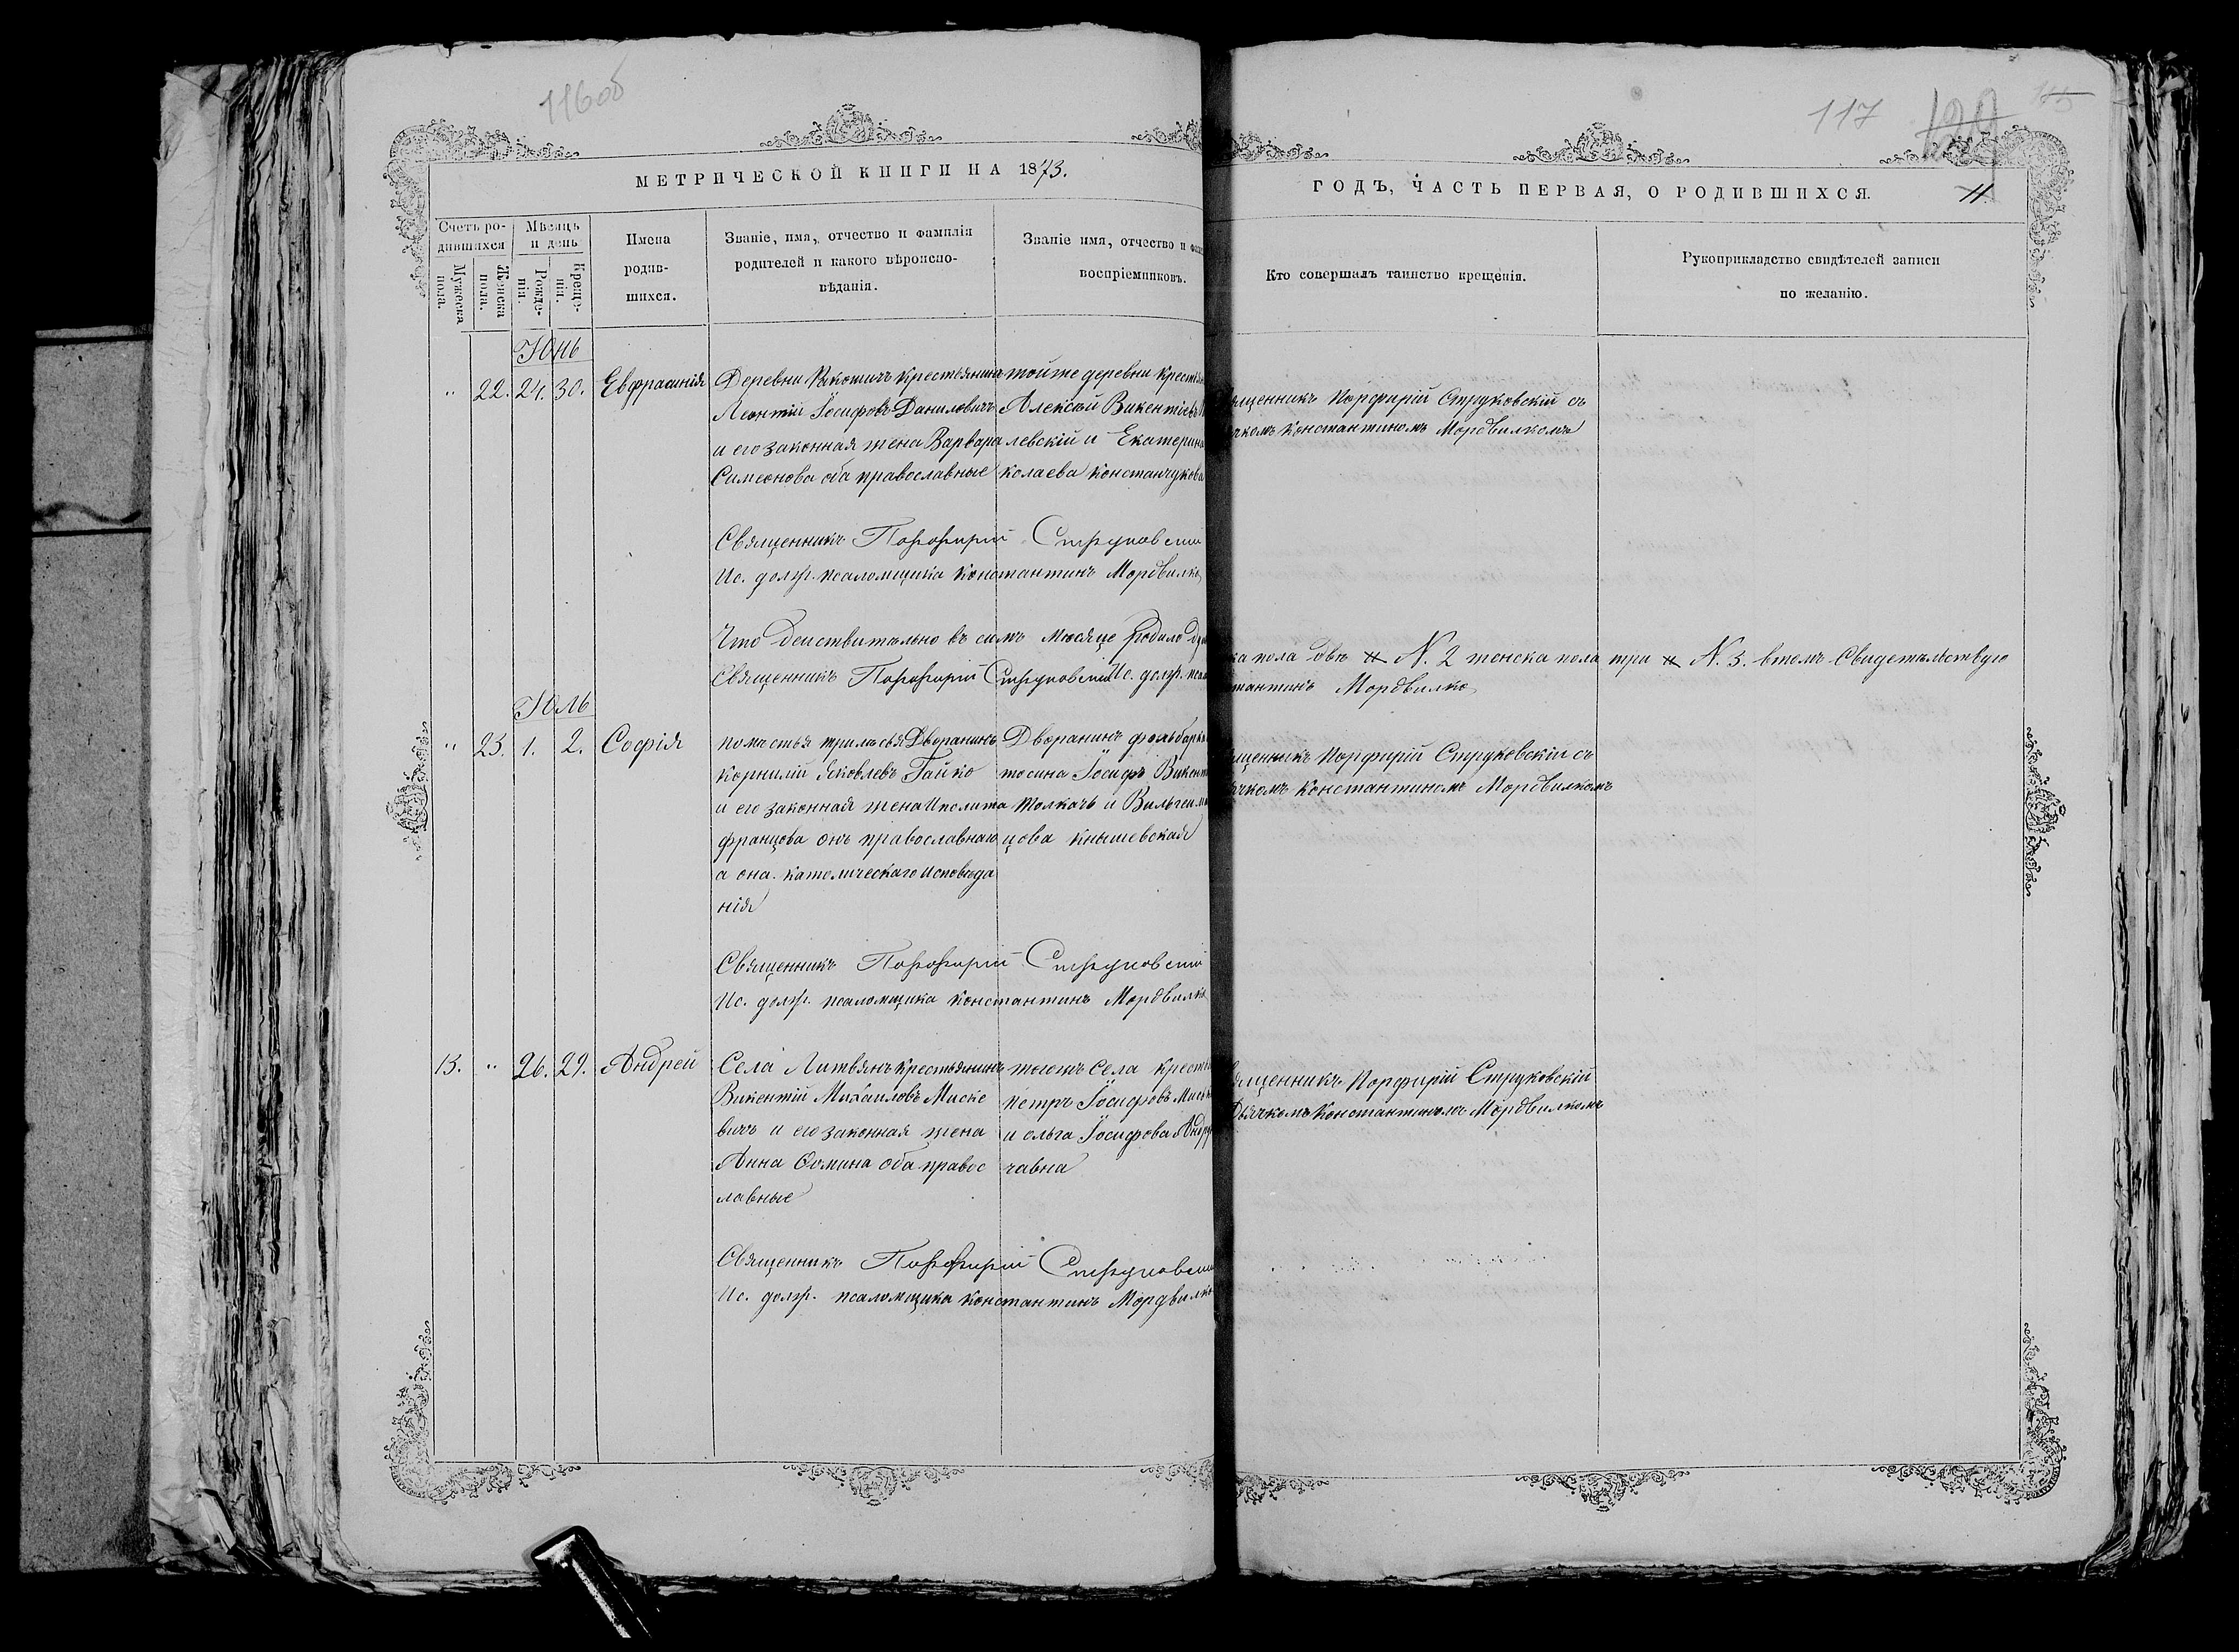 116об
117
МЕТРИЧЕСКОЙ КНИГИ НА 1873.
ГОДЪ, ЧАСТЬ ПЕРВАЯ, О РОДИВШИХСЯ.
11
Счетъ родившихся
Мужеска пола.
Женска пола.
Мѣсяцъ и день
Рожденія.
Крещенія.
Имена родившихся.
Званіе, имя, отчество и фамилія
родителей и какого вѣроиспо-
вѣданія.
Званіе имя, отчество и
воспріемниковъ.
Кто совершалъ таинство крещенія.
Рукоприкладство свидѣтелей записи
по желанію.
Июнь
" 22. 24. 30. Евфрасинія
Деревни крестьянинъ
Леонтій Іосифовъ Даниловичъ
и его законная жена Варвара
Симеонова оба православные
тойже деревни
Алексѣй Викентіевъ
левскій и Екатерина
колаева Констанчукова
Порфирій Струковскій съ
Константиномъ Мордвилкомъ
Священникъ Порфирій Струковскій
Ис. долж. псаломщика Константинъ Мордвилко
Что действительно въ семъ месяце родило
ка пола две N. 2 женска пола три N. 3. втомъ Свидетельствую
Священникъ Порфирій Струковскій Ис. долж.
Мордвилко
Июль
" 23. 1. 2. Софія
Дворанинъ
Корнилій Яковлевъ Гайко
и его законная жена Иполита
францова онъ православнаго
а она. католическаго исповеда
нія
Дворанинъ
Іосифъ
Толкачъ и
цова Кнышевская
Порфирій Струковскій съ
Константиномъ Мордвилкомъ
Священникъ Порфирій Струковскій
Ис. долж. псаломщика Константинъ Мордвилко
13. " 26. 29. Андрей
Села Литвянъ крестьянинъ
Викентій Михаиловъ Миске
вичъ и его законная жена
Анна Фомина оба правос
лавные
тогожъ Села
Петръ Іосифовъ
и ольга Іосифова
чавна
Порфирій Струковскій
Дьячкомъ Константиномъ Мордвилкомъ
Священникъ Порфирій Струковскій
Ис. долж. псаломщика Константинъ Мордвилко